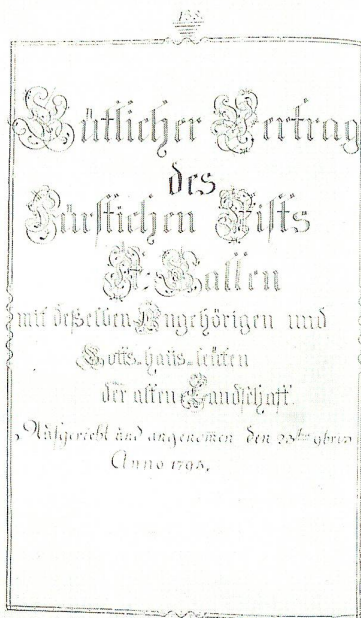 Gütlicher Vertrag
des
Fürstlichen Stifts
St: Gallen
mit deßelben Angehörigen und
Gotts-haus-leüten
der alten Landschaft.
Aufgericht und angenom̄en den 23ten 9bris
Anno 1795.